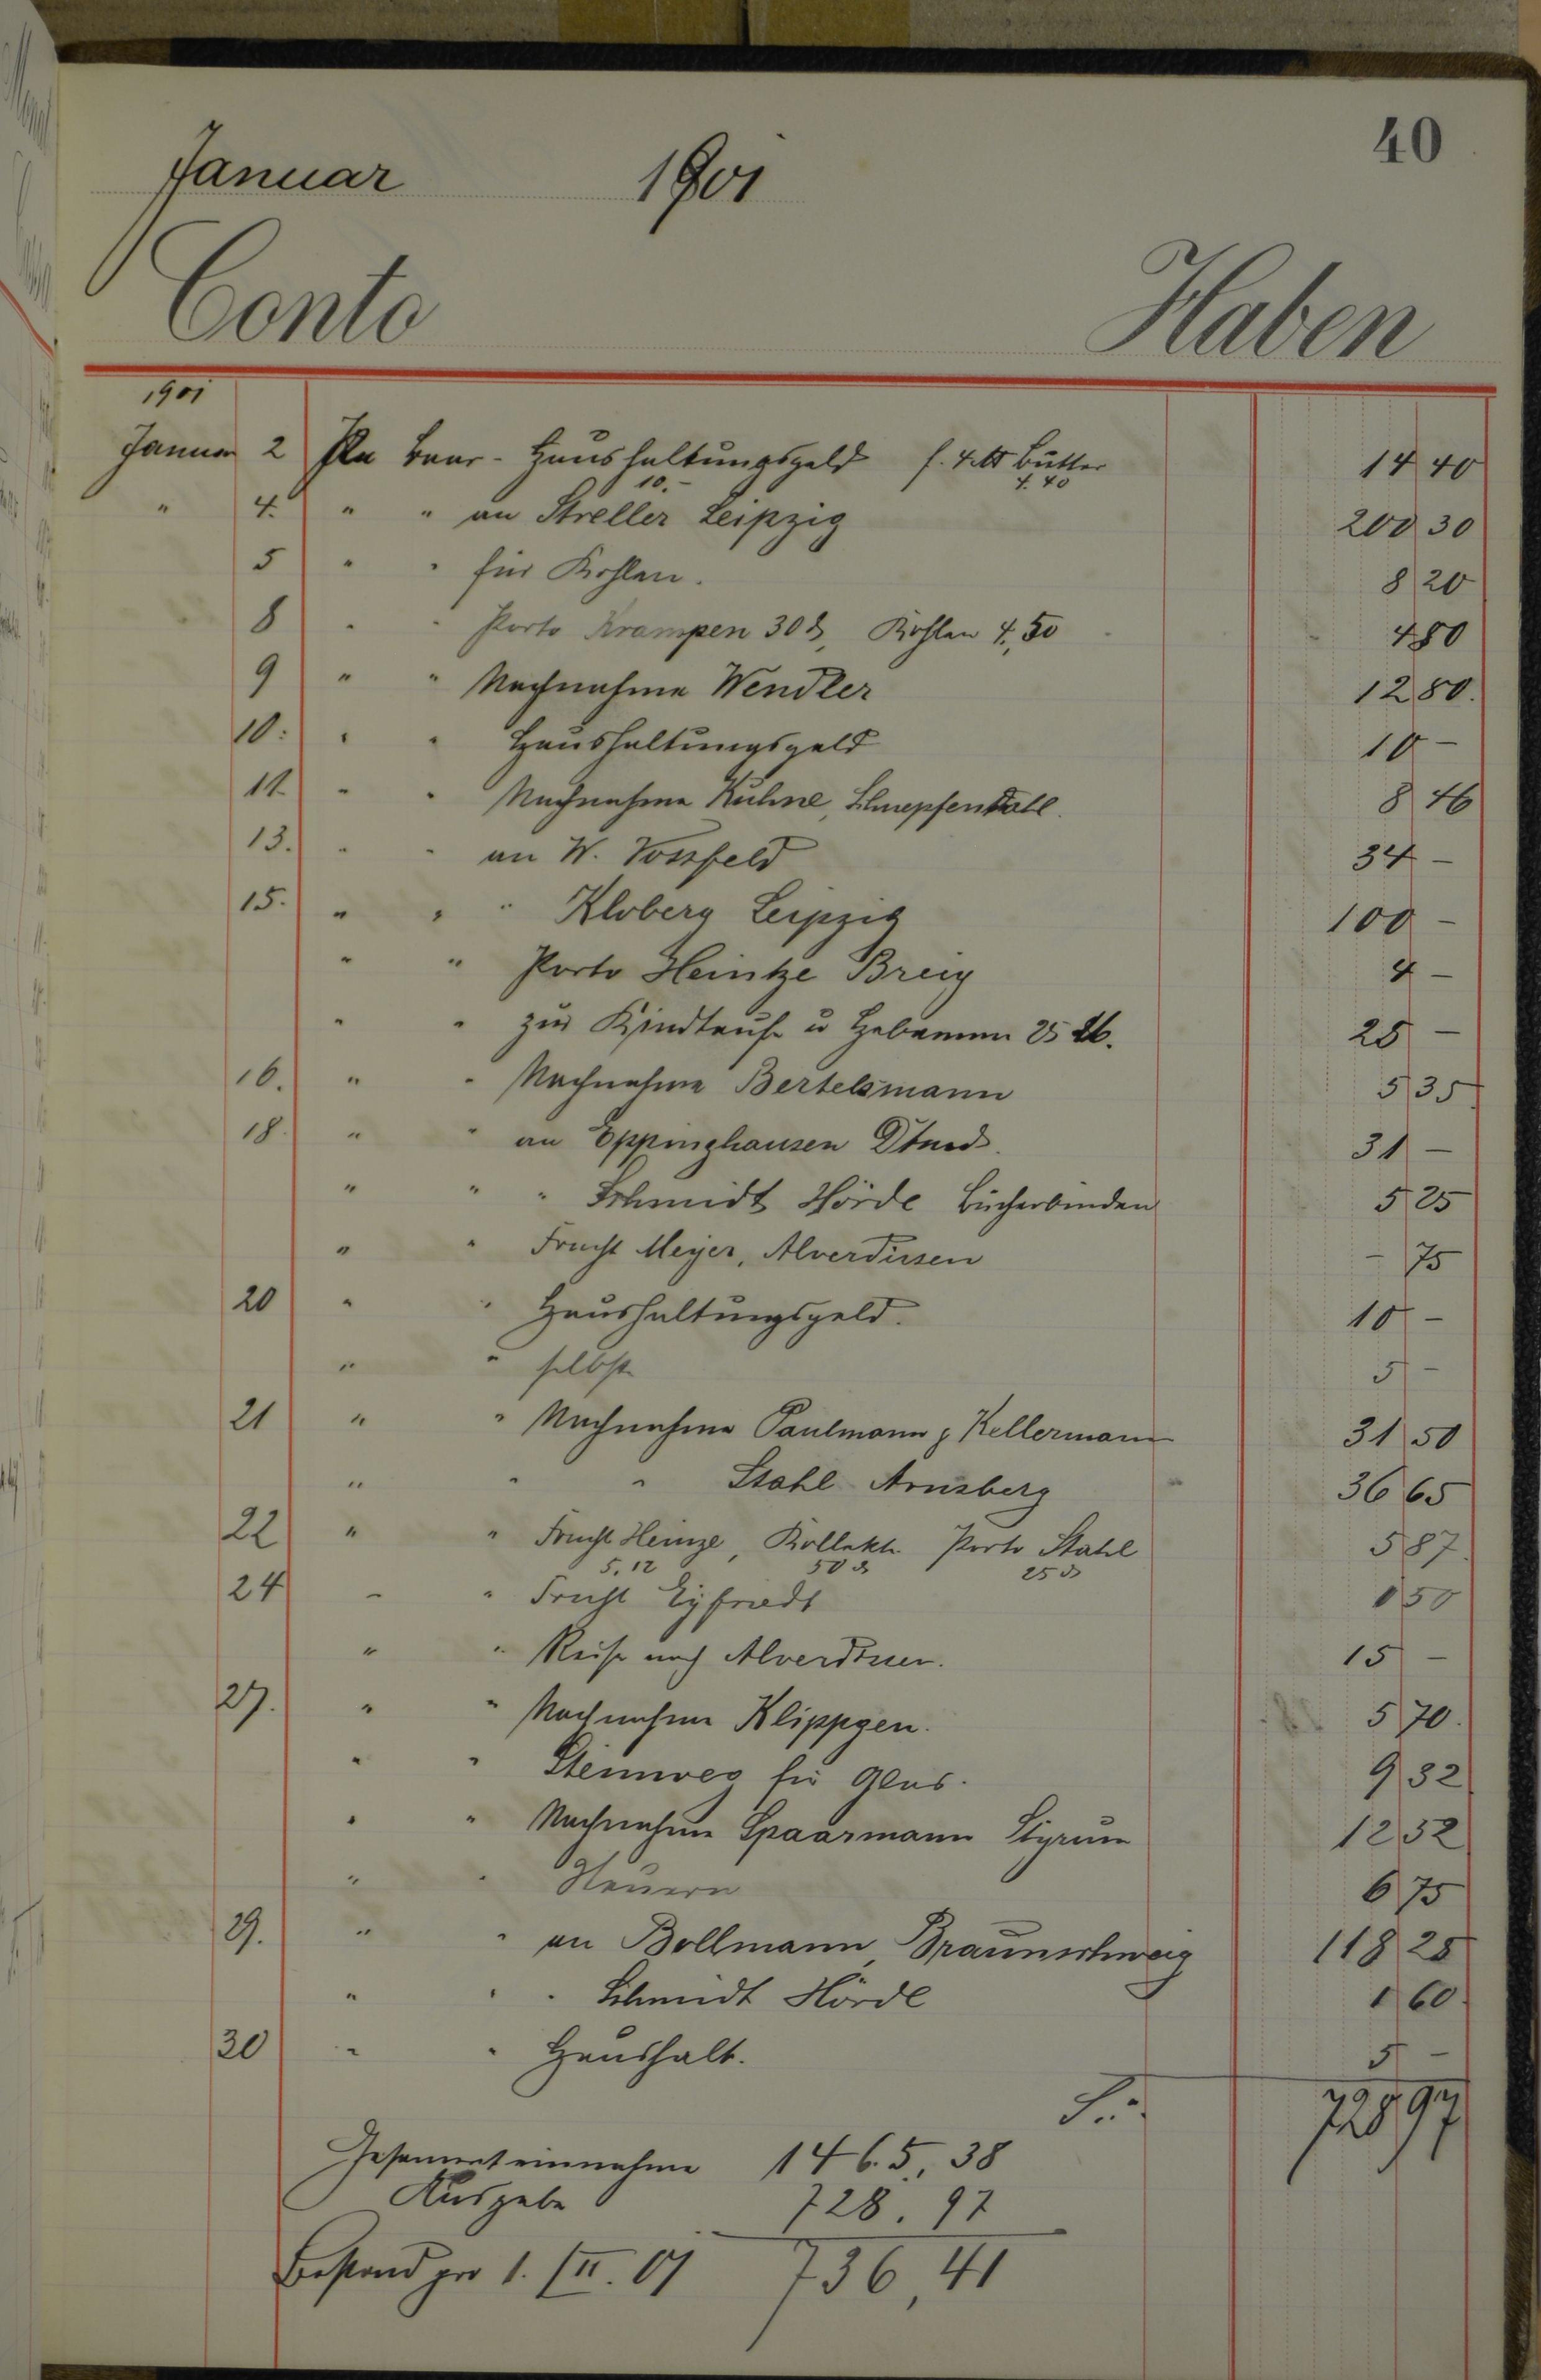 40
Januar 1901
Conto Haben
1901
Januar 2 Per Baar- Haushaltungsgeld f. 4 ℔ Butter 14 40
10.- 4.40
" 4. " " an Streller Leipzig 200 30
5 " " für Kohlen. 8 20
8 " " Porto Krampen 30 ₰, Kohlen 4,50 4 80
9 " " Nachnahme Wendler 12 80.
10. " " Haushaltungsgeld 10 -
11. " " Nachnahme Kühne, Schnepfenthal. 8 46
13. " " an W. Vossfeld 34 -
15. " " " Kloberg Leipzig 100 -
" " Porto Heintze Brieg 4 -
" " zur Kindtaufe u Hebamme 25 M. 25 -
16. " " Nachnahme Bertelsmann 5 35
18. " " an Eppinghausen Dtmd. 31 -
" " " Schmidt Hörde Bücherbinden 5 25
" " Fracht Meyer, Alverdissen - 75
20 " " Haushaltungsgeld. 10 -
" " selbst 5 -
21 " " Nachnahme Paulmann & Kellermann 31 50
" " " Stahl Arnsberg 36 65
22 " " Fracht Heinze, Kollekte Porto Stahl 5 87.
5,12 50 ₰ 25 ₰
24 " " Fracht Eyfriedt 1 50
" " Reise nach Alverdissen. 15 -
27. " " Nachnahme Klippgen. 5 70.
" " Steinweg für Glas. 9 32
" " Nachnahme Spaarmann Styrum 12 52
" " Steuern 6 75
29. " " an Bollmann, Braunschweig 118 25
" " " Schmidt Hörde 1 60.
30 " " Haushalt. 5 -
S. 728 97
Gesammteinnahme 1465,38
Ausgabe 728.97
Bestand pro 1./II.01 736,41